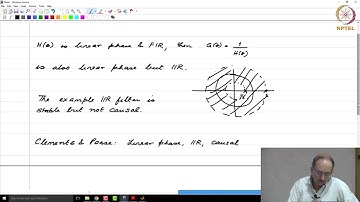 NPTEL
H(z) is linear phase & FIR, then G(z) = 1/H(z)
is also linear phase but IIR.
The example IIR filter is
stable but not causal.
Clements & Pease: Linear phase, IIR, causal